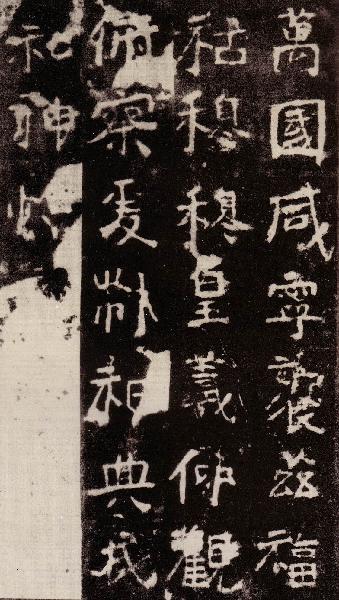 萬國咸寧襲茲福
祜穆穆皇羲仰觀
俯察爰制典
神